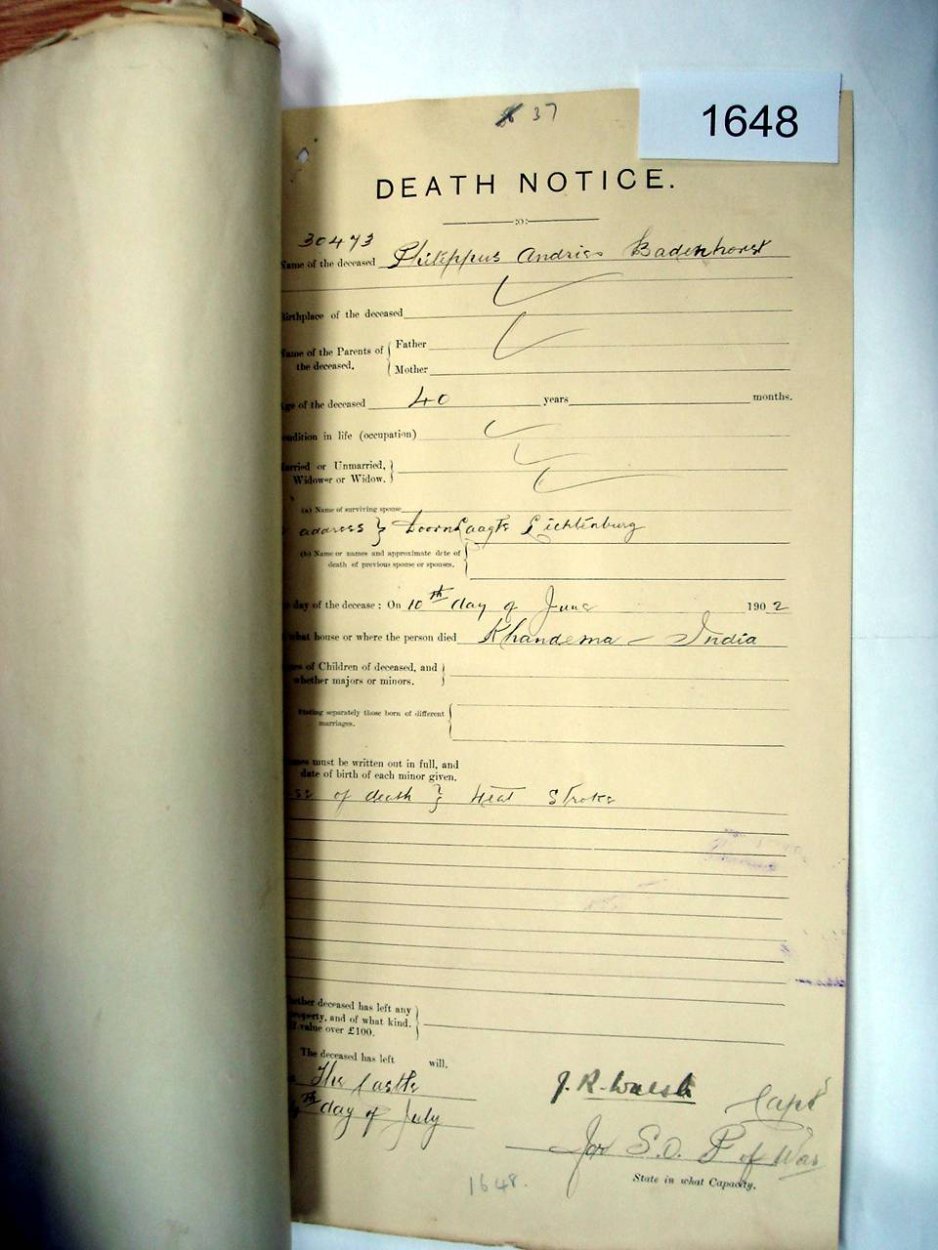 1648
37
DEATH NOTICE.
30473
Name of the deceased Philippus Andries Badenhorst
Birthplace of the deceased
Name of the Parents of the deceased. { Father
Mother
Age of the deceased 40 years months.
ondition in life (occupation)
arried or Unmarried,
Widower or Widow. }
(a) Name of surviving spouse
address } Doornlaagte Lichtenburg
(b) Name or names and approximate date of
death of previous spouse or spouses. {
day of the decease: On 10th day of June 1902
what house or where the person died Khandema - India
es of Children of deceased, and
whether majors or minors. }
Stating separately those born of different
marriages. {
mes must be written out in full, and
date of birth of each minor given.
of death } Heat Stroke
ether deceased has left any
roperty, and of what kind.
value over £100. }
The deceased has left will.
The Castle
th day of July
J. R. Walsh Capt
for S.O. P of War
State in what Capacity.
1648.